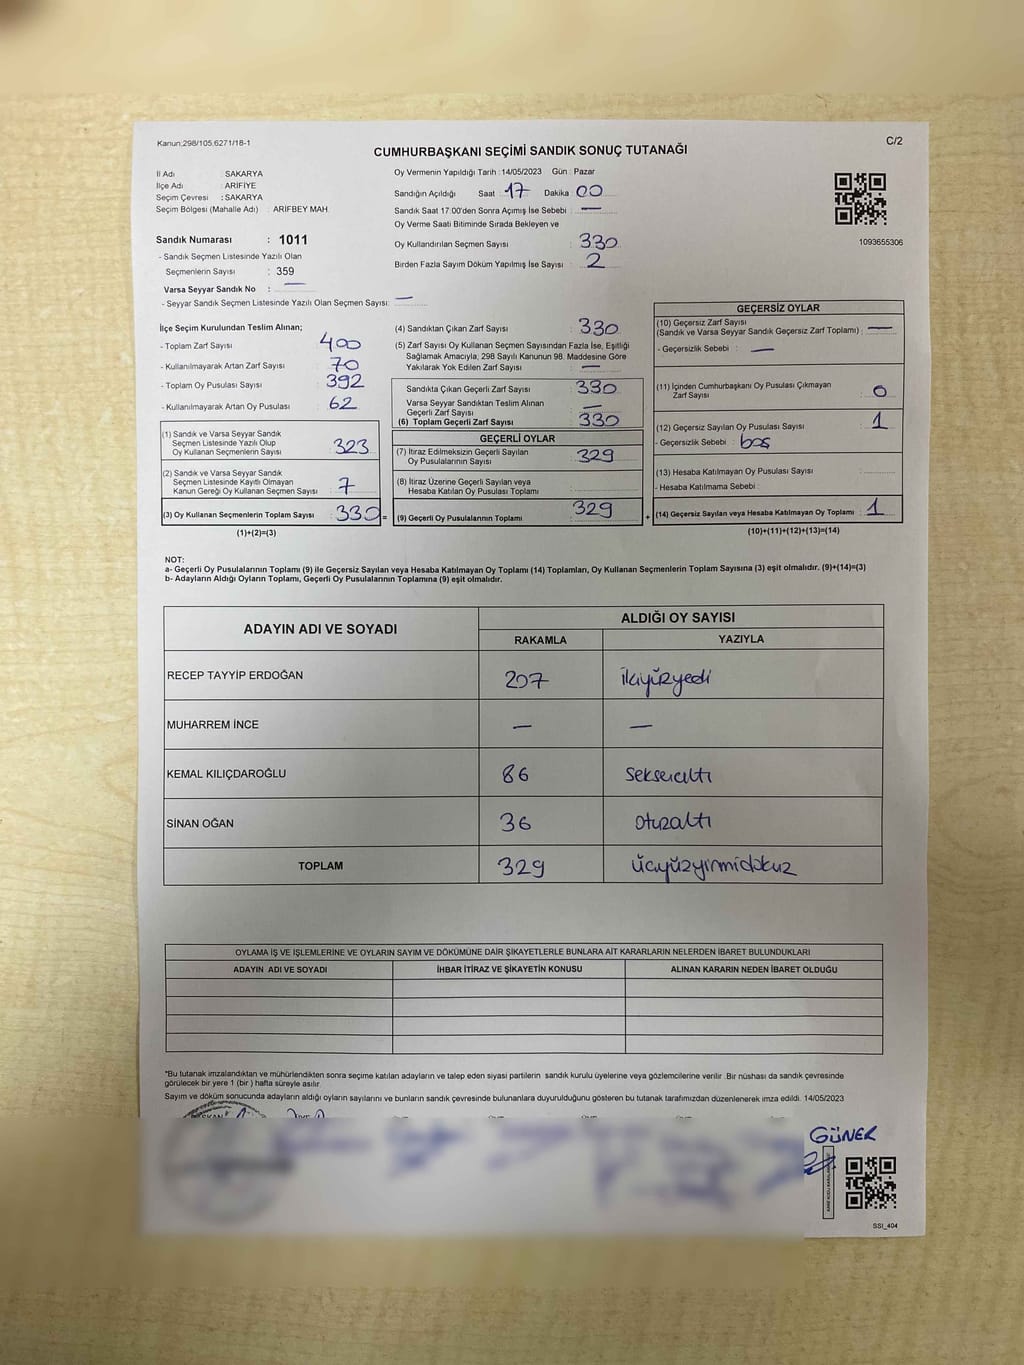 Kanun,298/105,6271/18-1
C/2
CUMHURBAŞKANI SEÇİMİ SANDIK SONUÇ TUTANAĞI
İl Adı : SAKARYA
İlçe Adı : ARİFİYE
Seçim Çevresi : SAKARYA
Seçim Bölgesi (Mahalle Adı) : ARİFBEY MAH.
Sandık Numarası : 1011
- Sandık Seçmen Listesinde Yazılı Olan
Seçmenlerin Sayısı : 359
Varsa Seyyar Sandık No : —
- Seyyar Sandık Seçmen Listesinde Yazılı Olan Seçmen Sayısı: —
Oy Vermenin Yapıldığı Tarih : 14/05/2023 Gün : Pazar
Sandığın Açıldığı Saat : 17 Dakika : 00
Sandık Saat 17.00'den Sonra Açımış İse Sebebi : —
Oy Verme Saati Bitiminde Sırada Bekleyen ve
Oy Kullandırılan Seçmen Sayısı : 330
Birden Fazla Sayım Döküm Yapılmış İse Sayısı : 2
1093655306
İlçe Seçim Kurulundan Teslim Alınan;
- Toplam Zarf Sayısı : 400
- Kullanılmayarak Artan Zarf Sayısı : 70
- Toplam Oy Pusulası Sayısı : 392
- Kullanılmayarak Artan Oy Pusulası : 62
(1) Sandık ve Varsa Seyyar Sandık
Seçmen Listesinde Yazılı Olup
Oy Kullanan Seçmenlerin Sayısı : 323
(2) Sandık ve Varsa Seyyar Sandık
Seçmen Listesinde Kayıtlı Olmayan
Kanun Gereği Oy Kullanan Seçmen Sayısı : 7
(3) Oy Kullanan Seçmenlerin Toplam Sayısı : 330 =
(1)+(2)=(3)
(4) Sandıktan Çıkan Zarf Sayısı : 330
(5) Zarf Sayısı Oy Kullanan Seçmen Sayısından Fazla İse, Eşitliği
Sağlamak Amacıyla, 298 Sayılı Kanunun 98. Maddesine Göre
Yakılarak Yok Edilen Zarf Sayısı : —
Sandıkta Çıkan Geçerli Zarf Sayısı : 330
Varsa Seyyar Sandıktan Teslim Alınan
Geçerli Zarf Sayısı : —
(6) Toplam Geçerli Zarf Sayısı : 330
GEÇERLİ OYLAR
(7) İtiraz Edilmeksizin Geçerli Sayılan
Oy Pusulalarının Sayısı : 329
(8) İtiraz Üzerine Geçerli Sayılan veya
Hesaba Katılan Oy Pusulası Toplamı :
(9) Geçerli Oy Pusulalarının Toplamı : 329 +
GEÇERSİZ OYLAR
(10) Geçersiz Zarf Sayısı
(Sandık ve Varsa Seyyar Sandık Geçersiz Zarf Toplamı) : —
- Geçersizlik Sebebi : —
(11) İçinden Cumhurbaşkanı Oy Pusulası Çıkmayan
Zarf Sayısı : 0
(12) Geçersiz Sayılan Oy Pusulası Sayısı : 1
- Geçersizlik Sebebi : boş
(13) Hesaba Katılmayan Oy Pusulası Sayısı :
- Hesaba Katılmama Sebebi :
(14) Geçersiz Sayılan veya Hesaba Katılmayan Oy Toplamı : 1
(10)+(11)+(12)+(13)=(14)
NOT:
a- Geçerli Oy Pusulalarının Toplamı (9) ile Geçersiz Sayılan veya Hesaba Katılmayan Oy Toplamı (14) Toplamları, Oy Kullanan Seçmenlerin Toplam Sayısına (3) eşit olmalıdır. (9)+(14)=(3)
b- Adayların Aldığı Oyların Toplamı, Geçerli Oy Pusulalarının Toplamına (9) eşit olmalıdır.
ADAYIN ADI VE SOYADI ALDIĞI OY SAYISI
RAKAMLA YAZIYLA
RECEP TAYYİP ERDOĞAN 207 ikiyüzyedi
MUHARREM İNCE — —
KEMAL KILIÇDAROĞLU 86 seksenaltı
SİNAN OĞAN 36 otuzaltı
TOPLAM 329 üçyüzyirmidokuz
OYLAMA İŞ VE İŞLEMLERİNE VE OYLARIN SAYIM VE DÖKÜMÜNE DAİR ŞİKAYETLERLE BUNLARA AİT KARARLARIN NELERDEN İBARET BULUNDUKLARI
ADAYIN ADI VE SOYADI İHBAR İTİRAZ VE ŞİKAYETİN KONUSU ALINAN KARARIN NEDEN İBARET OLDUĞU
*Bu tutanak imzalandıktan ve mühürlendikten sonra seçime katılan adayların ve talep eden siyasi partilerin sandık kurulu üyelerine veya gözlemcilerine verilir .Bir nüshası da sandık çevresinde
görülecek bir yere 1 (bir ) hafta süreyle asılır.
Sayım ve döküm sonucunda adayların aldığı oyların sayılarını ve bunların sandık çevresinde bulunanlara duyurulduğunu gösteren bu tutanak tarafımızdan düzenlenerek imza edildi. 14/05/2023
GÜNER
SSI_404